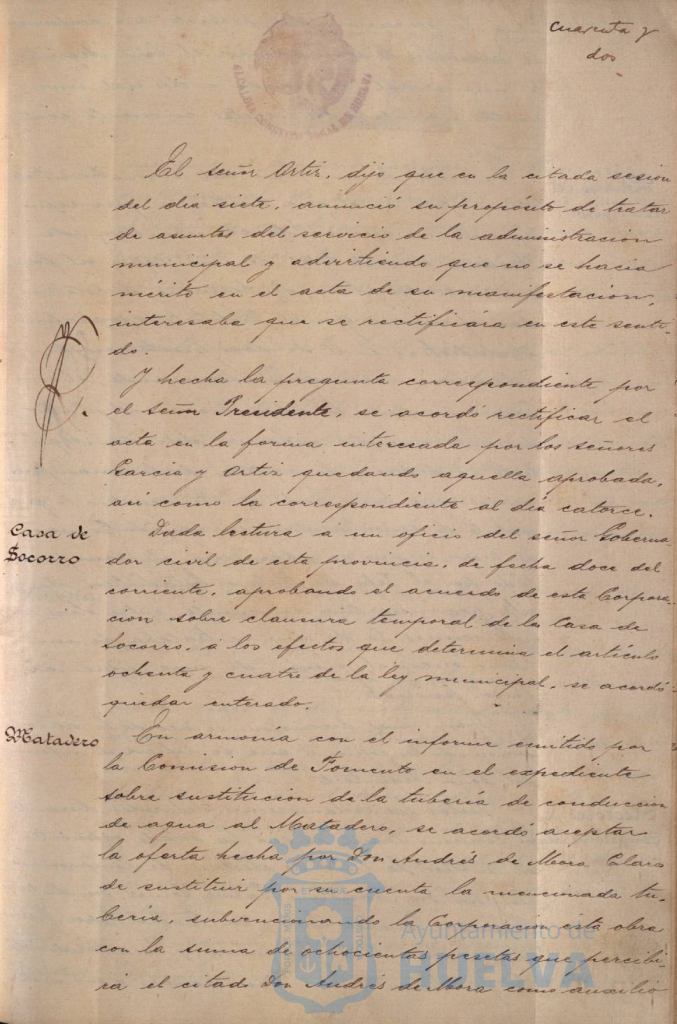 Cuarenta y
dos
ALCALDIA CONSTITUCIONAL DE HUELVA
El señor Ortiz, dijo que en la citada sesion
del dia siete, anunció su propósito de tratar
de asuntos del servicio de la administracion
municipal y advirtiendo que no se hacia
mérito en el acta de su manifestacion,
interesaba que se rectificára en este senti-
do.
Y hecha la pregunta correspondiente por
el señor Presidente, se acordó rectificar el
acta en la forma interesada por los señores
Garcia y Ortiz quedando aquella aprobada,
asi como la correspondiente al dia catorce.
Casa de
Socorro
Dada lectura a un oficio del señor Goberna-
dor civil de esta provincia, de fecha doce del
corriente, aprobando el acuerdo de esta Corpora-
cion sobre clausura temporal de la Casa de
Socorro, á los efectos que determina el artículo
ochenta y cuatro de la ley municipal, se acordó
quedar enterado.
Matadero
En armonía con el informe emitido por
la Comision de Fomento en el expediente
sobre sustitucion de la tubería de conduccion
de agua al Matadero, se acordó aceptar
la oferta hecha por Don Andrés de Mora Claro
de sustituir por su cuenta la mencionada tu-
bería, subvencionando la Corporacion esta obra
con la suma de ochocientas pesetas que percibi-
rá el citado Don Andrés de Mora como auxilio
Ayuntamiento de
HUELVA